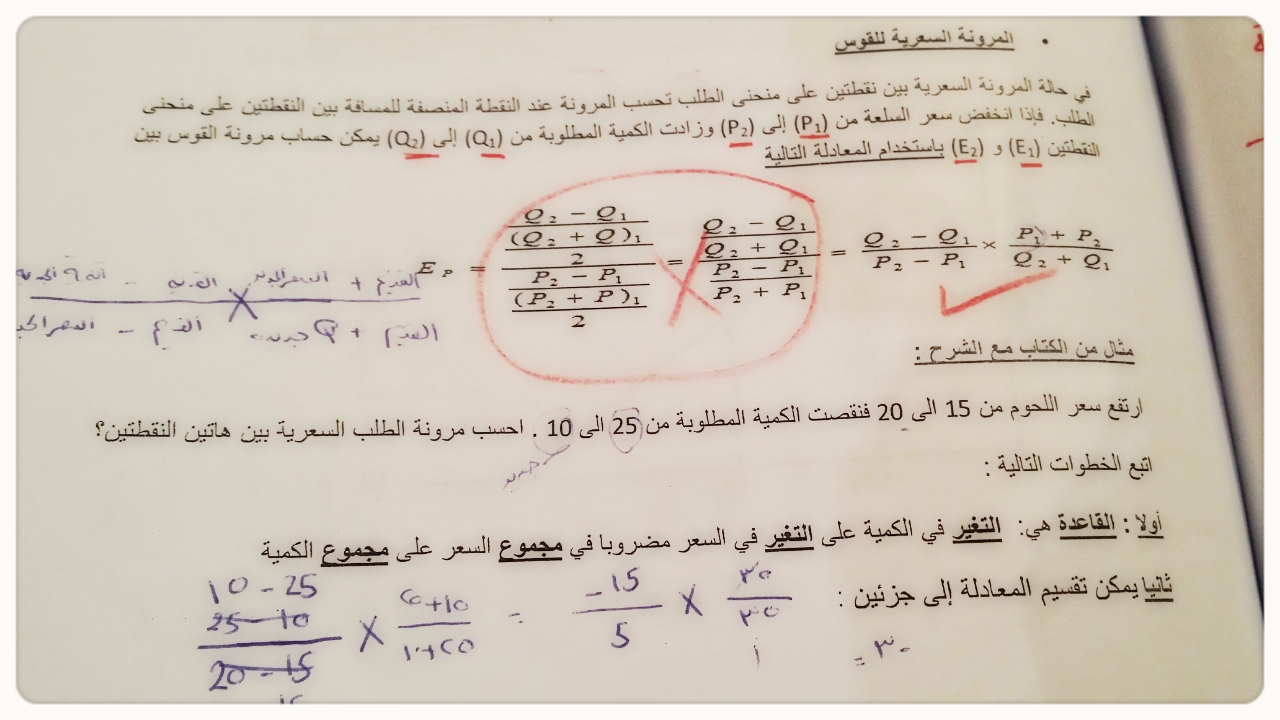 • المرونة السعرية للقوس
في حالة المرونة السعرية بين نقطتين على منحنى الطلب تحسب المرونة عند النقطة المنصفة للمسافة بين النقطتين على منحنى
الطلب. فإذا انخفض سعر السلعة من (P₁) إلى (P₂) وزادت الكمية المطلوبة من (Q₁) إلى (Q₂) يمكن حساب مرونة القوس بين
النقطتين (E₁) و (E₂) باستخدام المعادلة التالية
E_P = ((Q₂ − Q₁) / ((Q₂ + Q)₁ / 2)) / ((P₂ − P₁) / ((P₂ + P)₁ / 2)) = ((Q₂ − Q₁) / (Q₂ + Q₁)) / ((P₂ − P₁) / (P₂ + P₁)) = (Q₂ − Q₁) / (P₂ − P₁) × (P₁ + P₂) / (Q₂ + Q₁)
مثال من الكتاب مع الشرح :
ارتفع سعر اللحوم من 15 الى 20 فنقصت الكمية المطلوبة من 25 الى 10 . احسب مرونة الطلب السعرية بين هاتين النقطتين؟
جديد
اتبع الخطوات التالية :
أولا : القاعدة هي: التغير في الكمية على التغير في السعر مضروبا في مجموع السعر على مجموع الكمية
ثانيا يمكن تقسيم المعادلة إلى جزئين :
10 - 25
25 - 10
20 - 15
-15 / 5 × ٣٥ / ٣٥
= ٣-